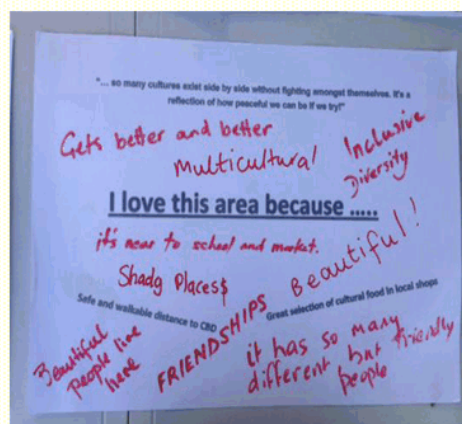 "... so many cultures exist side by side without fighting amongst themselves. It's a
reflection of how peaceful we can be if we try!"
Gets better and better
multicultural
Inclusive
Diversity
I love this area because .....
it's near to school and market.
Shady Places
Beautiful!
Safe and walkable distance to CBD
FRIENDSHIPS
Great selection of cultural food in local shops
Beautiful
people live
here
it has so many
different but friendly
people